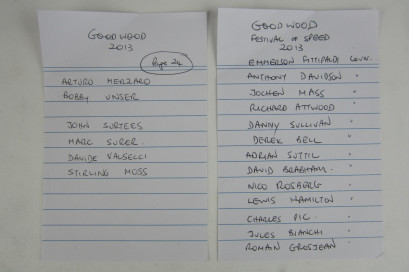 GOODWOOD
2013
Page 24
ARTURO MERZARO
BOBBY UNSER
JOHN SURTEES
MARC SURER.
DAVIDE VALSECCI
STIRLING MOSS
GOODWOOD
FESTIVAL OF SPEED
2013
EMMERSON FITTIPALDI
ANTHONY DAVIDSON "
JOCHEN MASS "
RICHARD ATTWOOD "
DANNY SULLIVAN "
DEREK BELL "
ADRIAN SUTTIL "
DAVID BRABHAM "
NICO ROSBERG "
LEWIS HAMILTON "
CHARLES PIC "
JULES BIANCHI "
ROMAN GROSJEAN "